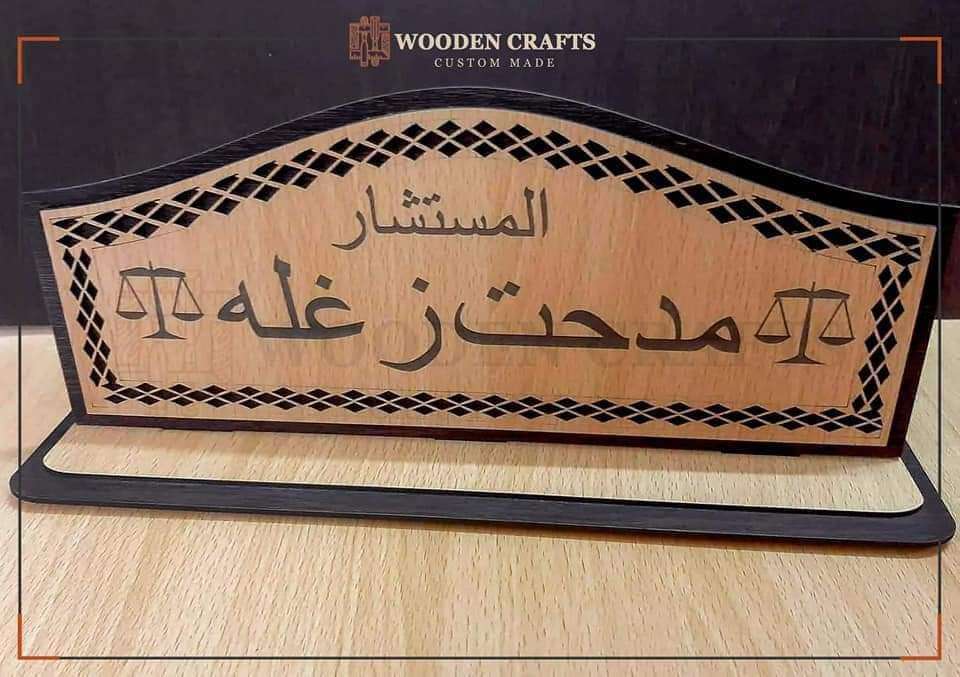 WOODEN CRAFTS
CUSTOM MADE
المستشار
مدحت زغله